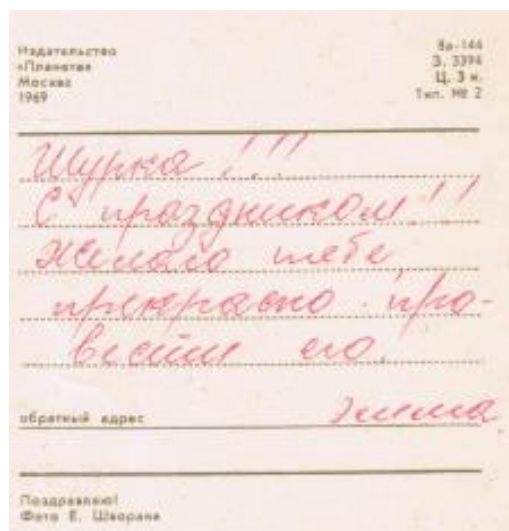 Издательство
«Планета»
Москва
1969
8а-144
З. 3394
Ц. 3 к.
Тип. № 2
Шурка!!!
С праздником!!
Желаю тебе
прекрасно про-
вести его.
обратный адрес
Эмма
Поздравляю!
Фото Е.